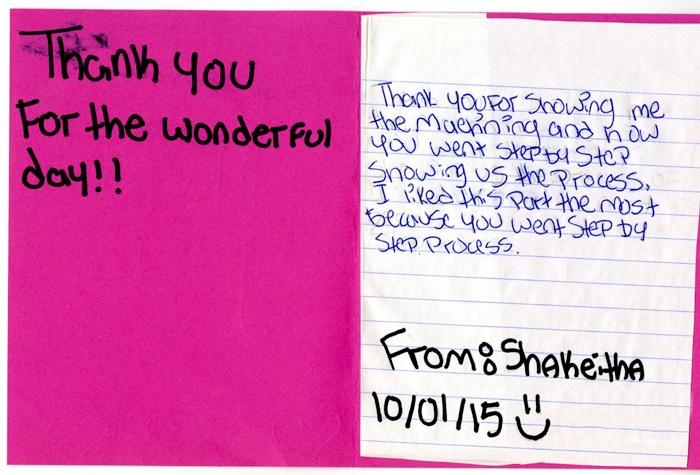 Thank you
For the wonderful
day!!
Thank you For showing me
the Machining and how
you went step by step
showing us the Process.
I liked this Part the most
because you went step by
step Process.
From: Shakeitha
10/01/15